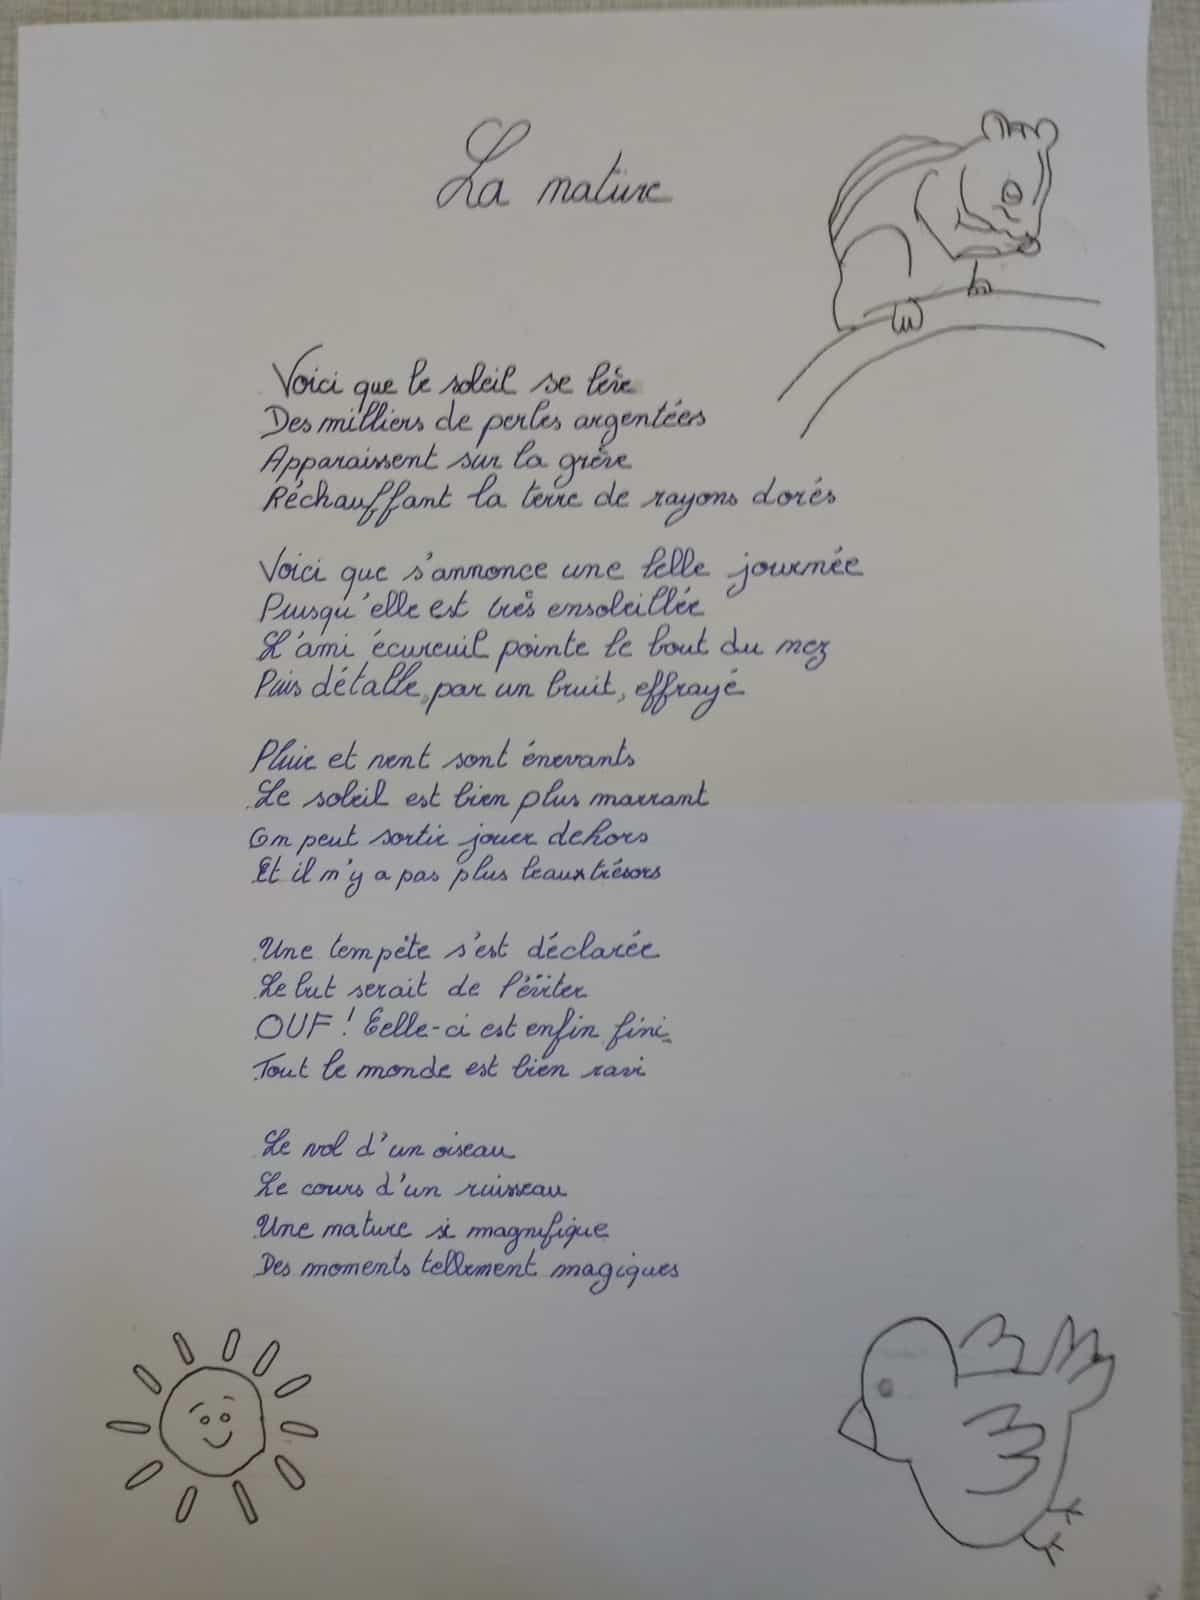 La nature
Voici que le soleil se lève
Des milliers de perles argentées
Apparaissent sur la grève
Réchauffant la terre de rayons dorés
Voici que s'annonce une belle journée
Puisqu'elle est très ensoleillée
L'ami écureuil pointe le bout du nez
Puis détalle, par un bruit, effrayé
Pluie et vent sont énervants
Le soleil est bien plus marrant
On peut sortir jouer dehors
Et il n'y a pas plus beaux trésors
Une tempête s'est déclarée
Le but serait de l'éviter
OUF ! Celle-ci est enfin fini
Tout le monde est bien ravi
Le vol d'un oiseau
Le cours d'un ruisseau
Une nature si magnifique
Des moments tellement magiques